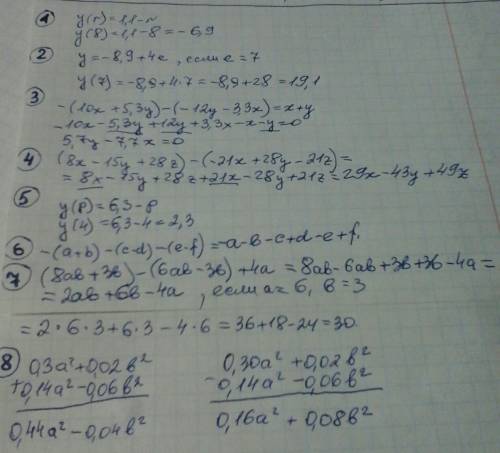 1 y(r)=1,1-r
y(8)=1,1-8=-6,9
2 y=-8,9+4e, если e=7
y(7)=-8,9+4·7=-8,9+28=19,1
3 -(10x+5,3y)-(-12y-3,3x)=x+y
-10x-5,3y+12y+3,3x-x-y=0
5,7y-7,7x=0
4 (8x-15y+28z)-(-21x+28y-21z)=
=8x-15y+28z+21x-28y+21z=29x-43y+49z
5 y(p)=6,3-p
y(4)=6,3-4=2,3
6 -(a+b)-(c-d)-(e-f)=-a-b-c+d-e+f.
7 (8ab+3b)-(6ab-3b)+4a=8ab-6ab+3b+3b-4a=
=2ab+6b-4a, если a=6, b=3
=2*6*3+6*3-4*6=36+18-24=30.
8 0,3a²+0,02b² 0,30a²+0,02b²
+0,14a²-0,06b² -0,14a²-0,06b²
0,44a²-0,04b² 0,16a²+0,08b²